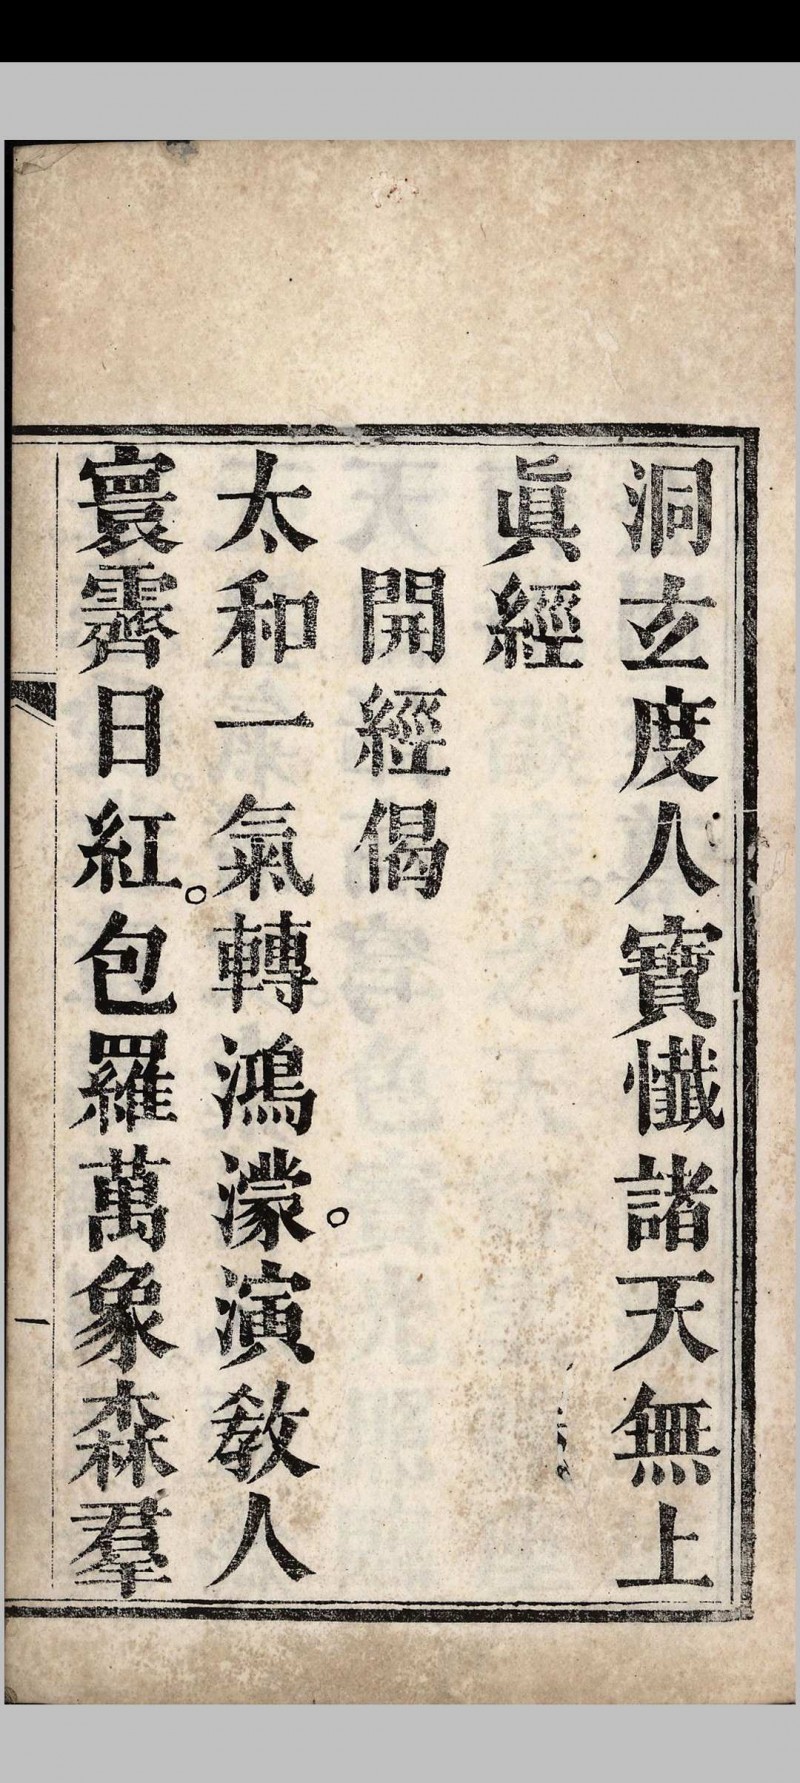 洞玄度人寶懺諸天無上
眞經
開經偈
太和一氣轉鴻濛。演教人
寰霽日紅。包羅萬象森羣
一